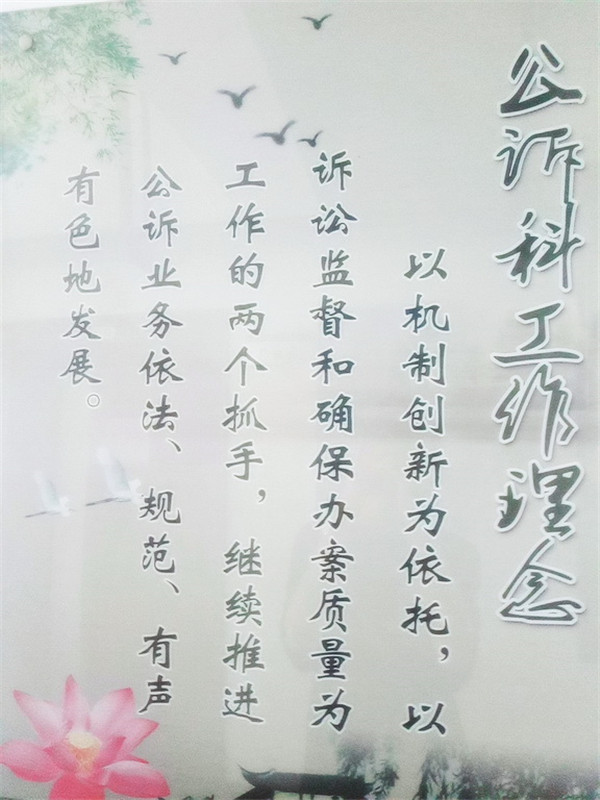 公诉科工作理念
以机制创新为依托，以
诉讼监督和确保办案质量为
工作的两个抓手，继续推进
公诉业务依法、规范、有声
有色地发展。